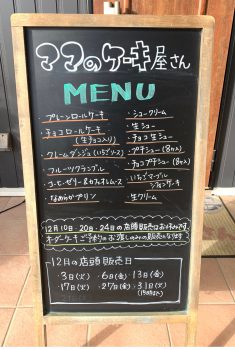 ママのケーキ屋さん
MENU
・プレーンロールケーキ
・チョコロールケーキ
（生チョコ入り）
・クレームダンジュ（いちごソース）
・フルーツクランブル
・コーヒーゼリー&カフェオレムース
・なめらかプリン
・シュークリーム
・生シュー
・チョコ生シュー
・プチシュー（8ヶ入）
・チョコプチシュー（8ヶ入）
・いちごマーブル
シフォンケーキ
・生クリーム
12月10日・20日・24日の店頭販売はお休みです。
オーダーケーキご予約のお渡しのみの販売となります。
12月の店頭販売日
3日(火)・6日(金)・13日(金)
17日(火)・27日(金)・31日(火)